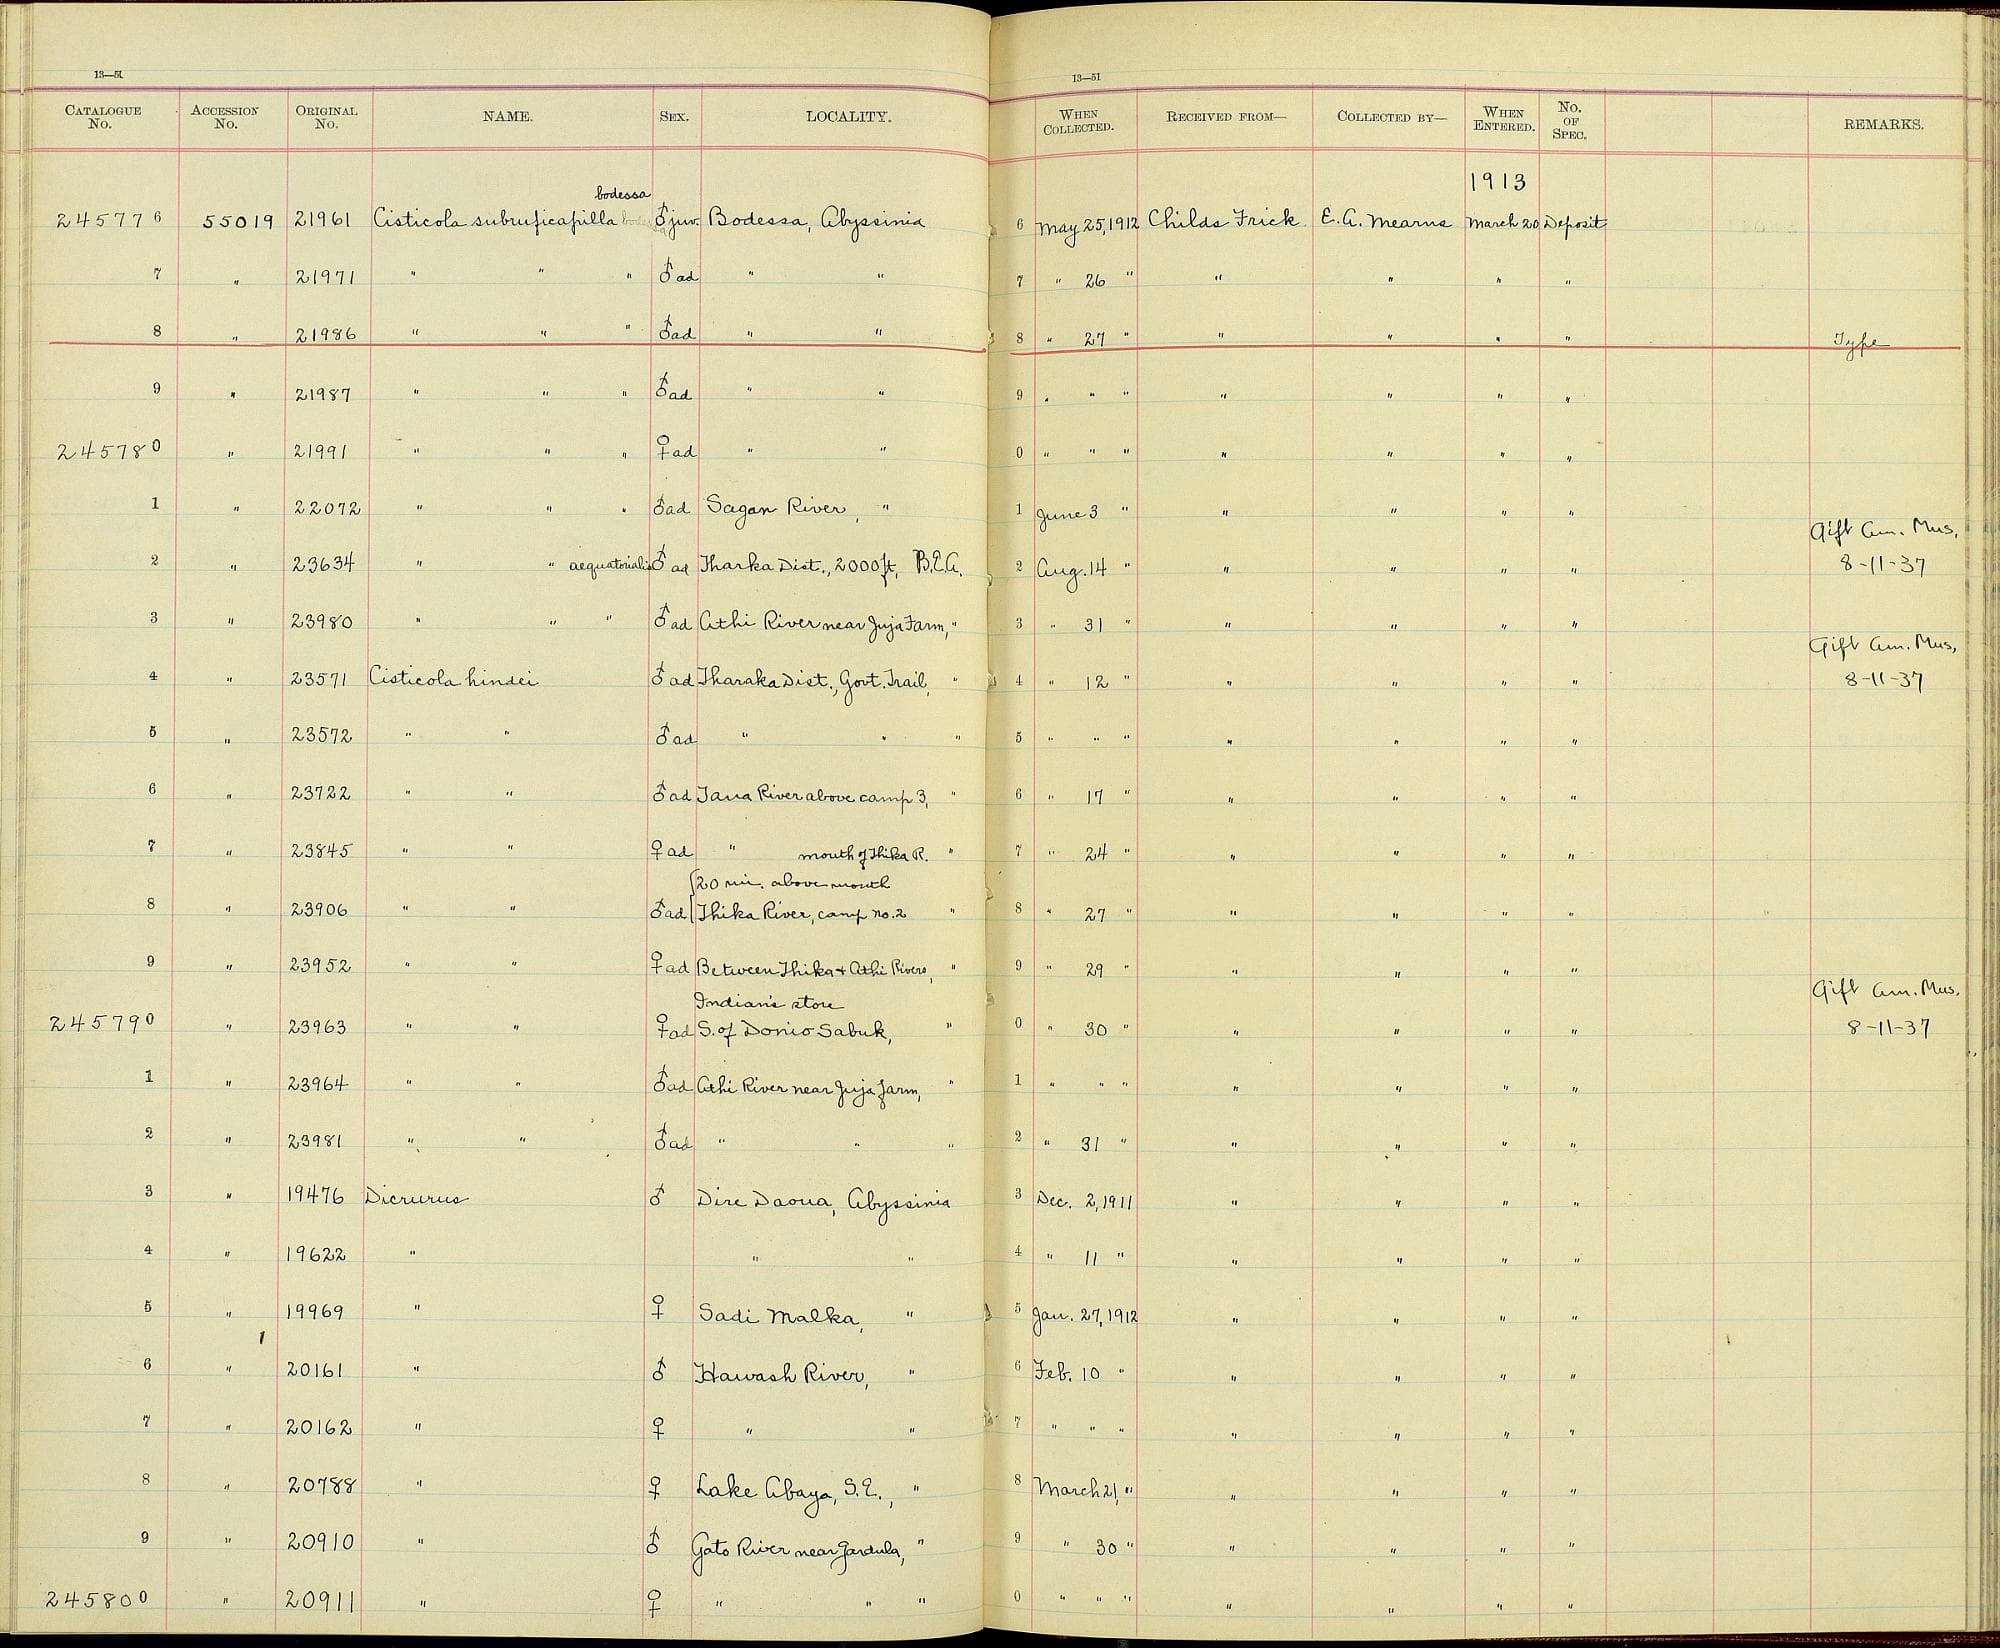 13—51
CATALOGUE No. ACCESSION No. ORIGINAL No. NAME. SEX. LOCALITY.
bodessa
245776 55019 21961 Cisticola subruficapilla ♂ juv. Bodessa, Abyssinia
7 " 21971 " " " ♂ ad " "
8 " 21986 " " " ♂ ad " "
9 " 21987 " " " ♂ ad " "
245780 " 21991 " " " ♀ ad " "
1 " 22072 " " " ♂ ad Sagan River, "
2 " 23634 " " aequatorialis ♂ ad Tharka Dist., 2000 ft, B.E.A.
3 " 23980 " " " ♂ ad Athi River near Juja Farm, "
4 " 23571 Cisticola hindei ♂ ad Tharaka Dist., Govt. Trail, "
5 " 23572 " " ♂ ad " " "
6 " 23722 " " ♂ ad Tana River above camp 3, "
7 " 23845 " " ♀ ad " mouth of Thika R. "
20 mi. above mouth
8 " 23906 " " ♂ ad Thika River, camp no. 2 "
9 " 23952 " " ♀ ad Between Thika & Athi Rivers, "
Indian's store
245790 " 23963 " " ♀ ad S. of Donio Sabuk, "
1 " 23964 " " ♂ ad Athi River near Juja farm, "
2 " 23981 " " ♂ ad " " "
3 " 19476 Dicrurus ♂ Dire Daoua, Abyssinia
4 " 19622 " " "
5 " 19969 " ♀ Sadi Malka, "
6 " 20161 " ♂ Hawash River, "
7 " 20162 " ♀ " "
8 " 20788 " ♀ Lake Abaya, S.E., "
9 " 20910 " ♂ Gato River near Gardula, "
245800 " 20911 " ♀ " " "
13—51
WHEN COLLECTED. RECEIVED FROM— COLLECTED BY— WHEN ENTERED. No. OF SPEC. REMARKS.
1913
6 May 25, 1912 Childs Frick E. A. Mearns March 20 Deposit
7 " 26 " " " " "
8 " 27 " " " " " Type
9 " " " " " " "
0 " " " " " " "
1 June 3 " " " " "
Gift Am. Mus.
2 Aug. 14 " " " " " 8-11-37
3 " 31 " " " " "
Gift Am. Mus.
4 " 12 " " " " " 8-11-37
5 " " " " " " "
6 " 17 " " " " "
7 " 24 " " " " "
8 " 27 " " " " "
9 " 29 " " " " "
Gift Am. Mus.
0 " 30 " " " " " 8-11-37
1 " " " " " " "
2 " 31 " " " " "
3 Dec. 2, 1911 " " " "
4 " 11 " " " " "
5 Jan. 27, 1912 " " " "
6 Feb. 10 " " " " "
7 " " " " " " "
8 March 21, " " " " "
9 " 30 " " " " "
0 " " " " " " "